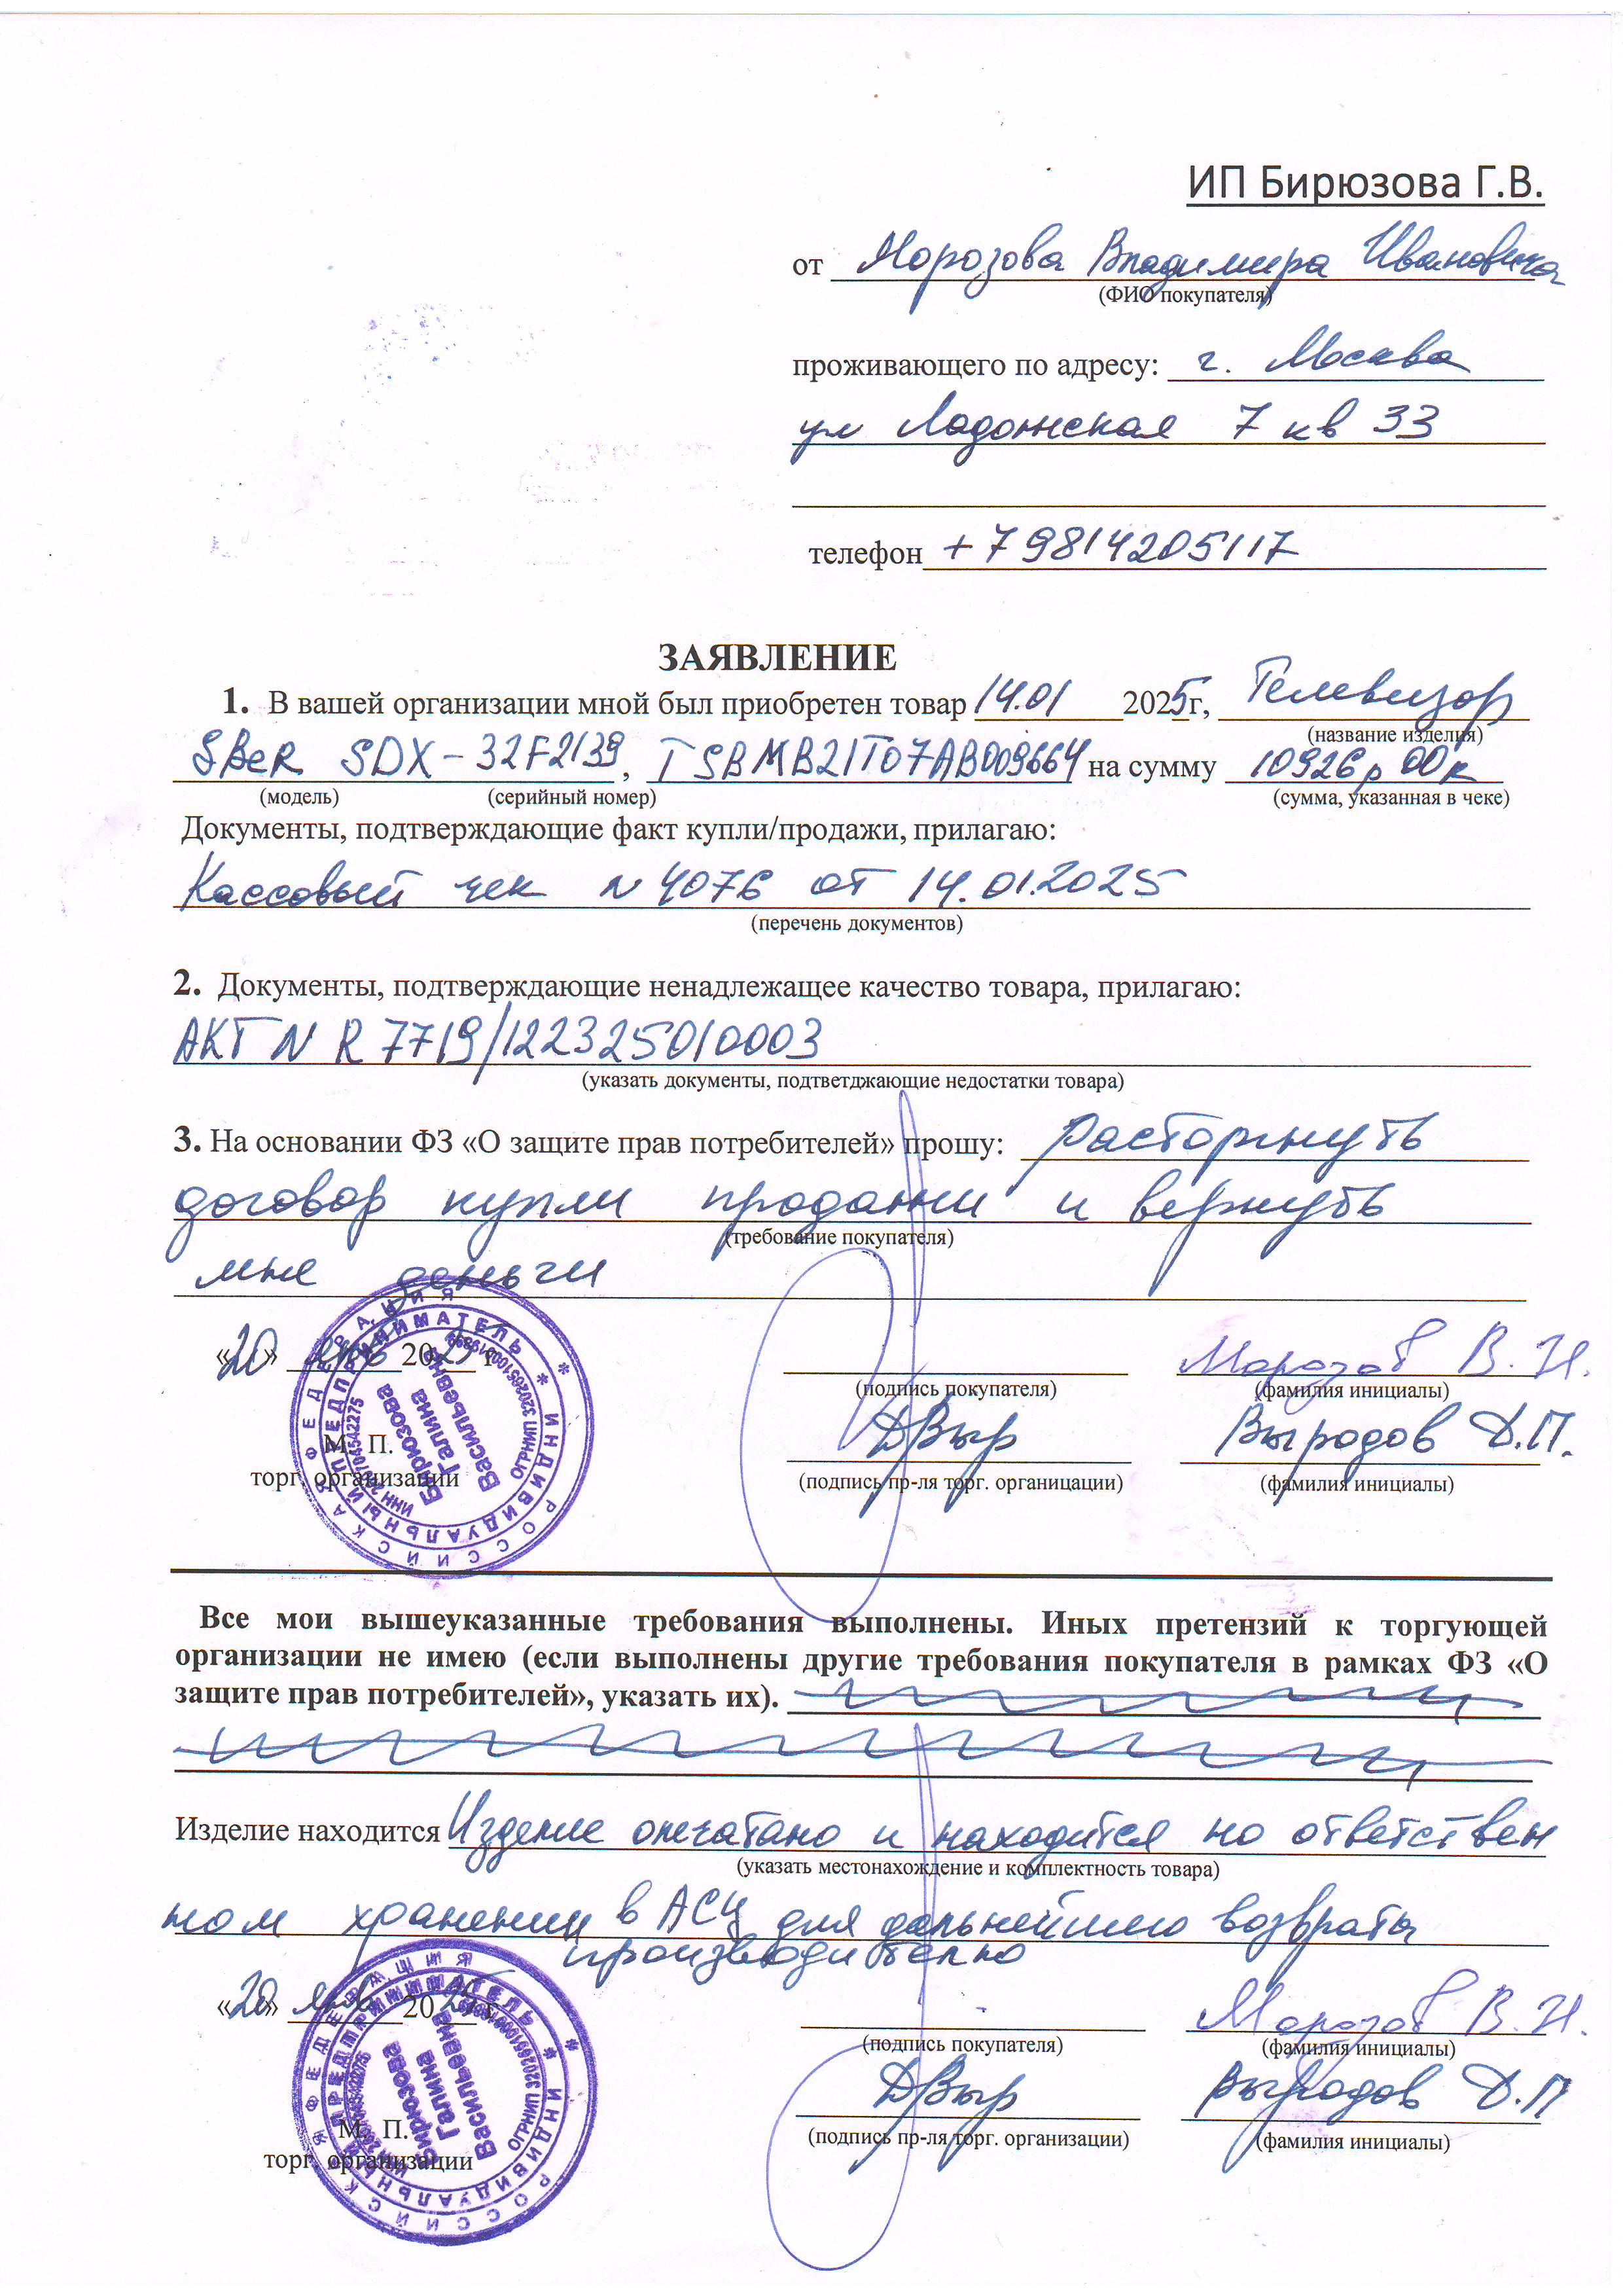 ИП Бирюзова Г.В.
от Морозова Владимира Ивановича
(ФИО покупателя)
проживающего по адресу: г. Москва
ул Ладожская 7 кв 33
телефон +79814205117
ЗАЯВЛЕНИЕ
1. В вашей организации мной был приобретен товар 14.01 2025г, Телевизор
(название изделия)
SBER SDX-32F2139, TSBMB21T07AB009664 на сумму 10926р 00к
(модель) (серийный номер) (сумма, указанная в чеке)
Документы, подтверждающие факт купли/продажи, прилагаю:
Кассовый чек N 4076 от 14.01.2025
(перечень документов)
2. Документы, подтверждающие ненадлежащее качество товара, прилагаю:
АКТ N R 7719/122325010003
(указать документы, подтветджающие недостатки товара)
3. На основании ФЗ «О защите прав потребителей» прошу: Расторгнуть
договор купли продажи и вернуть
(требование покупателя)
мне деньги
«20» янв 2025 г
(подпись покупателя) Морозов В.И.
(фамилия инициалы)
ДВыр Выродов Д.П.
М. П.
торг. организации (подпись пр-ля торг. органицации) (фамилия инициалы)
РОССИЙСКАЯ ФЕДЕРАЦИЯ * ИНДИВИДУАЛЬНЫЙ ПРЕДПРИНИМАТЕЛЬ *
Бирюзова Галина Васильевна
Все мои вышеуказанные требования выполнены. Иных претензий к торгующей
организации не имею (если выполнены другие требования покупателя в рамках ФЗ «О
защите прав потребителей», указать их).
Изделие находится Изделие опечатано и находится на ответствен
(указать местонахождение и комплектность товара)
ном хранении в АСЦ для дальнейшего возврата
производителю
«20» янв 2025 г
(подпись покупателя) Морозов В.И.
(фамилия инициалы)
ДВыр Выродов Д.П
М. П.
торг. организации (подпись пр-ля торг. организации) (фамилия инициалы)
РОССИЙСКАЯ ФЕДЕРАЦИЯ * ИНДИВИДУАЛЬНЫЙ ПРЕДПРИНИМАТЕЛЬ *
Бирюзова Галина Васильевна